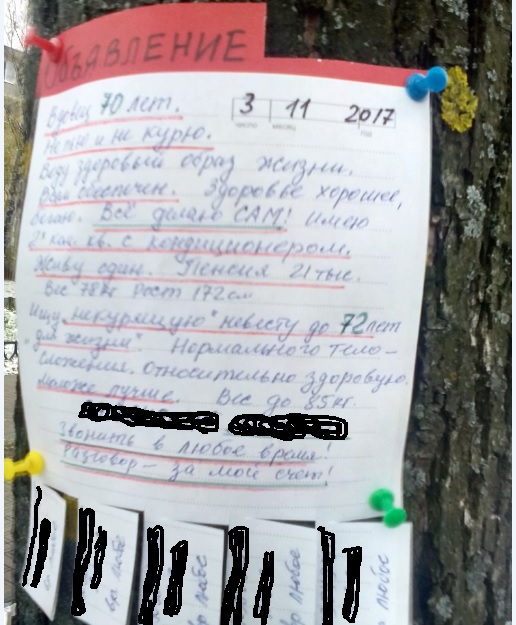 ОБЪЯВЛЕНИЕ
Вдовец 70 лет.
3 11 2017
число месяц год
Не пью и не курю.
Веду здоровый образ жизни.
Всем обеспечен. Здоровье хорошее,
бегаю. Всё делаю САМ! Имею
2х ком. кв. с кондиционером.
Живу один. Пенсия 21 тыс.
Вес 78 кг Рост 172 см
Ищу "некурящую" невесту до 72 лет
"для жизни" Нормального тело-
сложения. относительно здоровую.
моложе лучше. Вес до 85 кг.
Звонить в любое время!
Разговор - за мой счет!
любое
любое
любое
любое